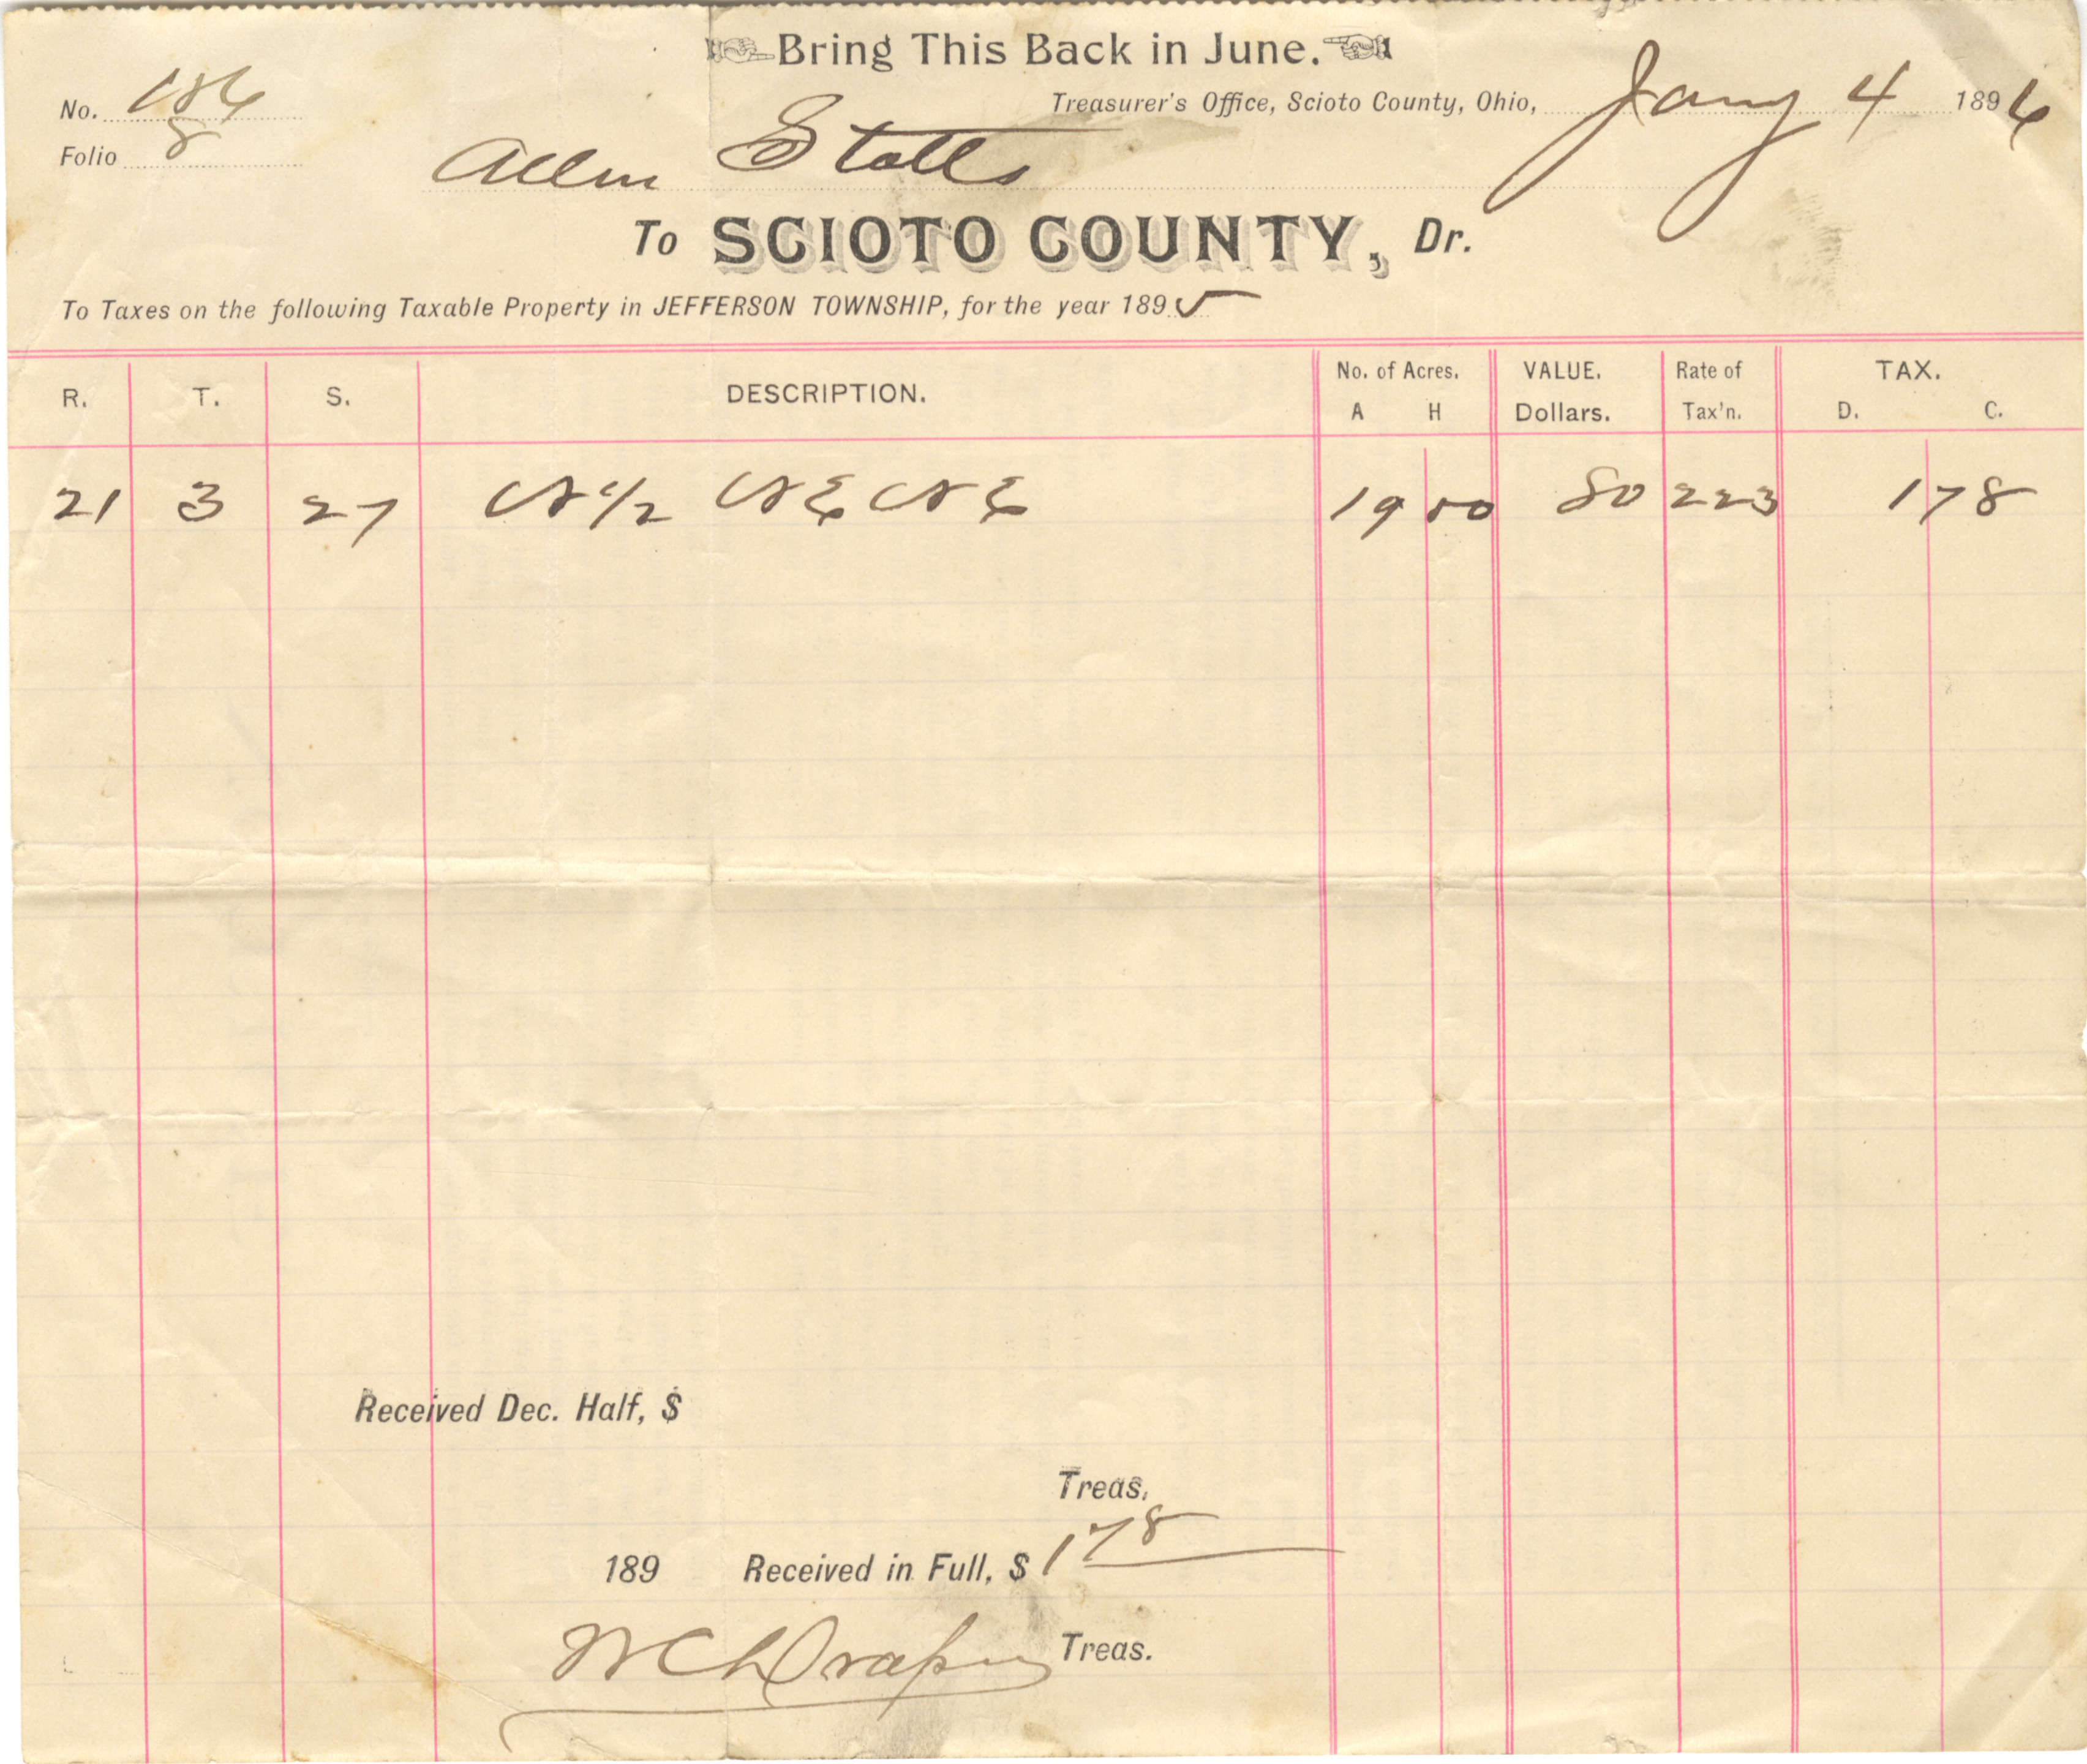 Bring This Back in June.
No. 186
Treasurer's Office, Scioto County, Ohio, Jany 4 1896
Folio 8
Allen Stalls
To SCIOTO COUNTY, Dr.
To Taxes on the following Taxable Property in JEFFERSON TOWNSHIP, for the year 1895
R. T. S. DESCRIPTION. No. of Acres. A H VALUE. Dollars. Rate of Tax'n. TAX. D. C.
21 3 27 N 1/2 NE NE 19 50 80 223 1 78
Received Dec. Half, $
Treas.
189 Received in Full, $ 1 78
W C Draper Treas.